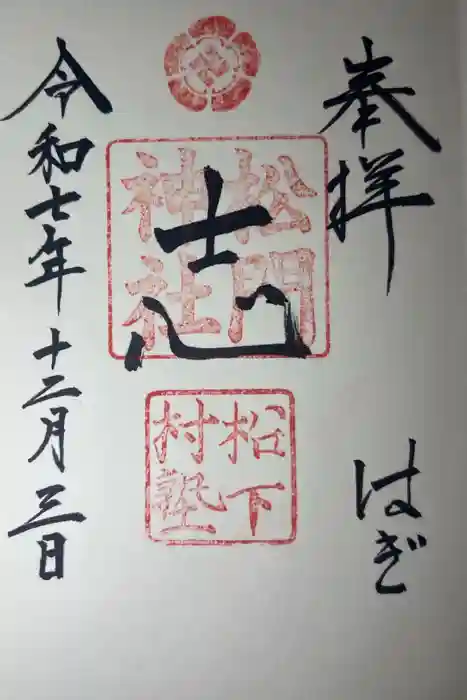 奉拝
はぎ
志
松門
神社
松下
村塾
令和七年十二月三日